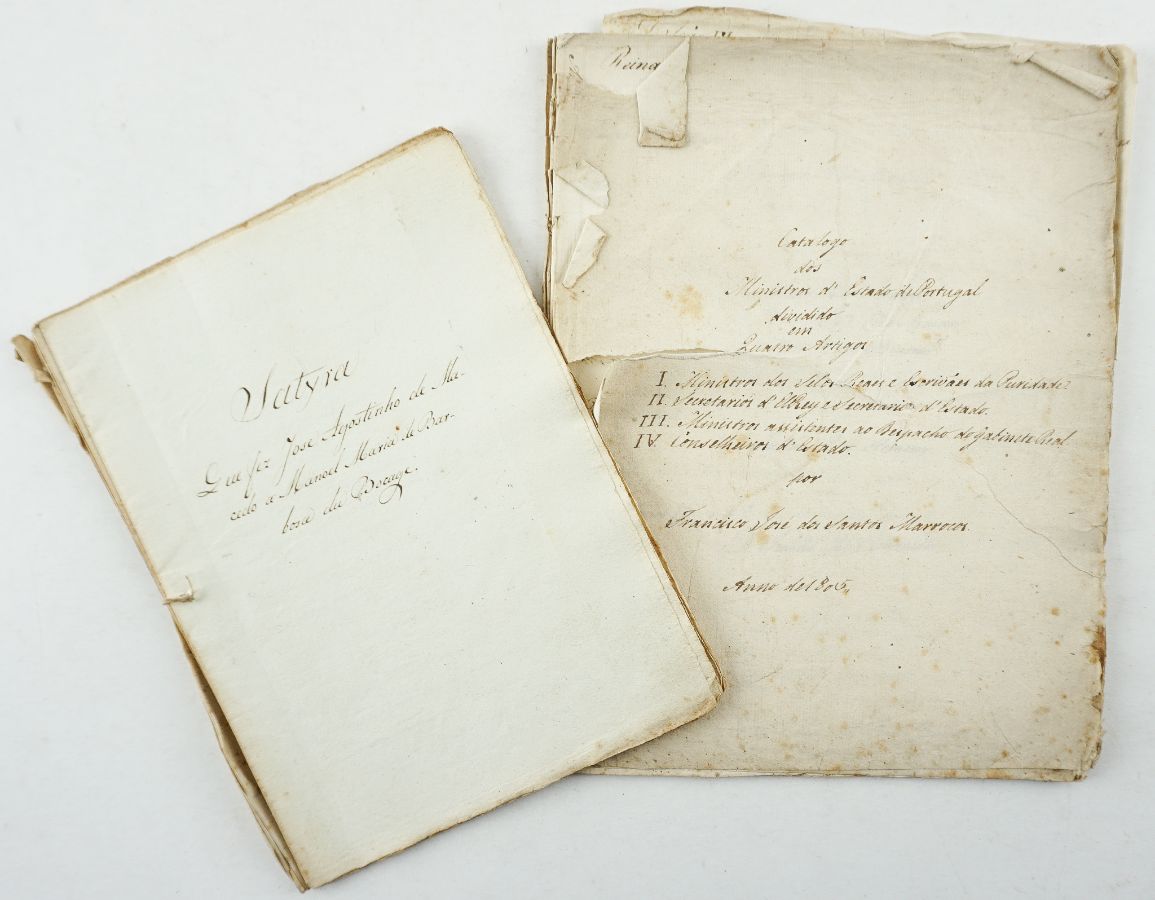 Satyra
Que fez José Agostinho de Ma-
cedo a Manoel Maria de Bar-
bosa du Bocage.
Reina
Catalogo
dos
Ministros d' Estado de Portugal
dividido
em
Quatro Artigos
I. Ministros dos Selos Reaes e Escrivães da Puridade.
II. Secretarios d' ElRey e Secretarios d' Estado.
III. Ministros assistentes ao Despacho do Gabinete Real
IV. Conselheiros d' Estado.
por
Francisco José dos Santos Marrocos.
Anno de 1805